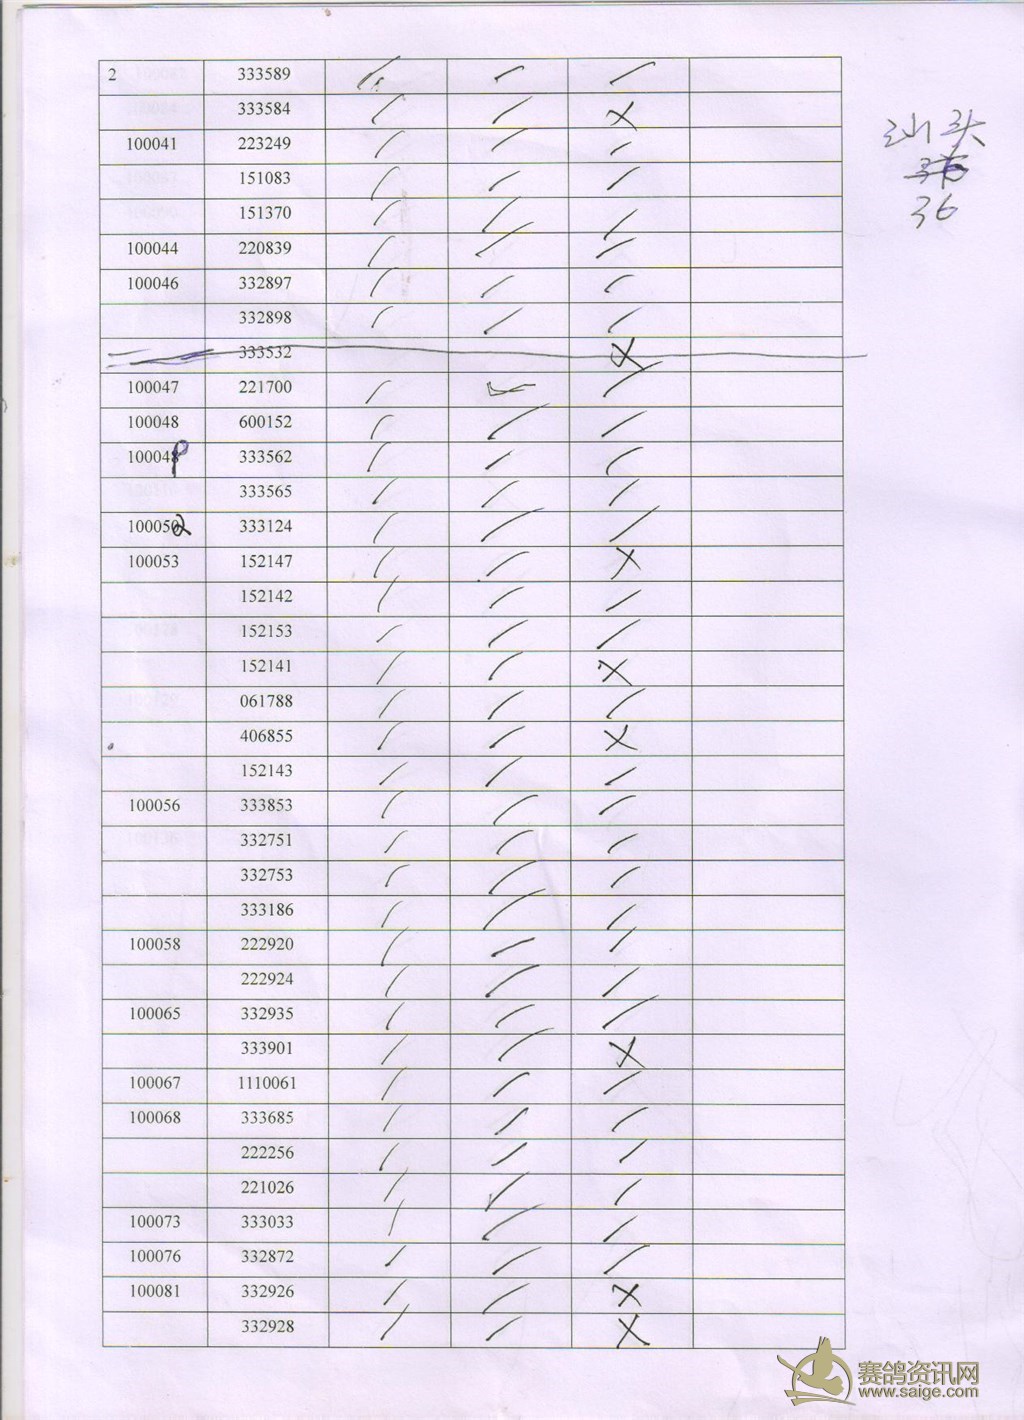 2 333589
333584 ×
100041 223249
151083
151370
100044 220839
100046 332897
332898
333532 ×
100047 221700
100048 600152
100048 333562
333565
100052 333124
100053 152147 ×
152142
152153
152141 ×
061788
406855 ×
152143
100056 333853
332751
332753
333186
100058 222920
222924
100065 332935
333901 ×
100067 1110061
100068 333685
222256
221026
100073 333033
100076 332872
100081 332926 ×
332928 ×
汕头
36
赛鸽资讯网
www.saige.com